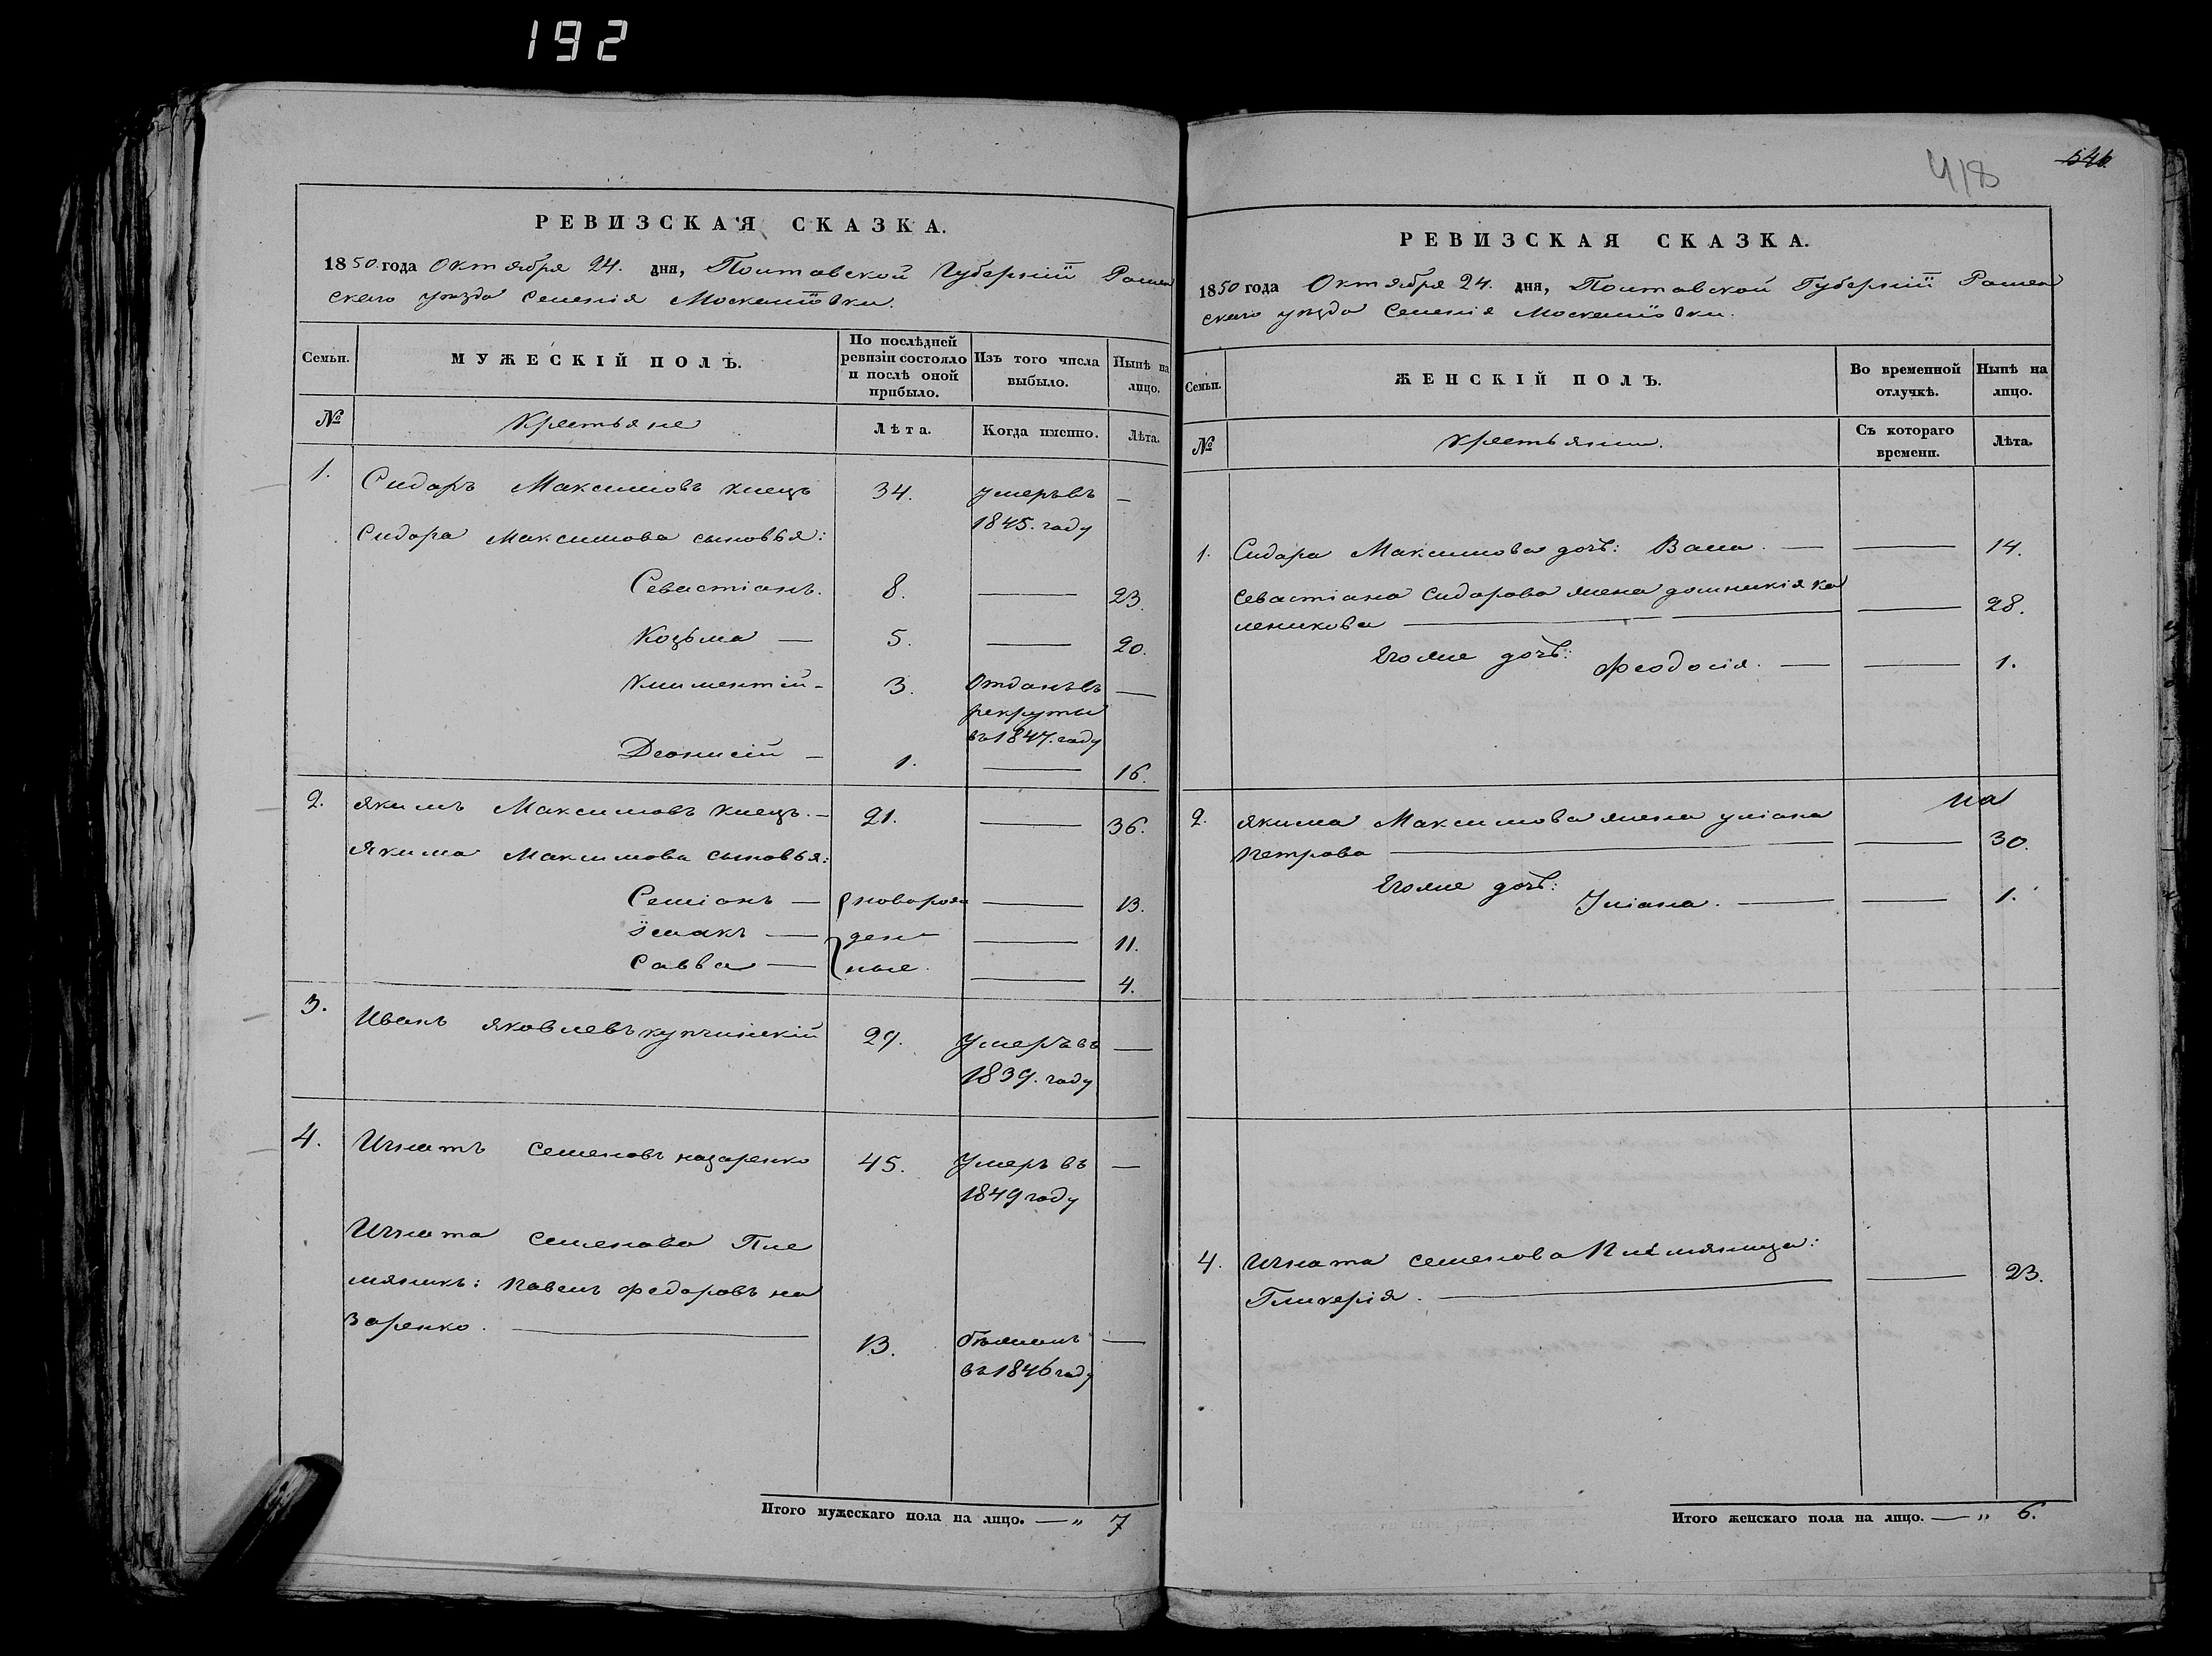 192
РЕВИЗСКАЯ СКАЗКА.
1850. года Октября 24. дня, Полтавской Губерніи Ромен
скаго уезда Селенія Москалiовки.
Семьи.
МУЖЕСКІЙ ПОЛЪ.
По послѣдней ревизіи состояло и послѣ оной прибыло.
Изъ того числа выбыло.
Нынѣ на лицо.
№
Крестьяне
Лѣта.
Когда именно.
Лѣта.
1. Сидоръ Максимовъ Книшъ 34. умеръ въ —
1845. году
Сидора Максимова сыновья:
Севастіанъ. 8. — 23.
Козьма — 5. — 20.
Климентій - 3. Отданъ въ —
рекруты
въ 1847. году
Деонисій — 1. — 16.
2. Якимъ Максимовъ Книшъ. — 21. — 36.
Якима Максимова сыновья:
Семіонъ — новорож — 13.
Ісакъ — ден — 11.
Савва — ные. — 4.
3. Иванъ Яковлевъ купчинскій 29. Умеръ въ —
1839. году
4. Игнатъ Семеновъ назаренко 45. Умеръ въ —
1849 году
Игната Семенова Пле
мяникъ: Павелъ Федоровъ на
заренко. — 13. бежалъ —
въ 1846 году
Итого мужескаго пола на лицо. — „ 7
418
546.
РЕВИЗСКАЯ СКАЗКА.
1850 года Октября 24. дня, Полтавской Губерніи Ромен
скаго уезда Селенія Москалiовки.
Семьи.
ЖЕНСКІЙ ПОЛЪ.
Во временной отлучкѣ.
Нынѣ на лицо.
№
Крестьянки.
Съ котораго времени.
Лѣта.
1. Сидора Максимова дочь: Васа. — — 14.
Севастіана Сидорова жена домникія ка
леникова — — 28.
Егоже дочь: Феодосія. — — 1.
2. Якима Максимова жена уліана
Петрова — — 30.
Егоже дочь: Уліана. — — 1.
4. Игната Семенова Племяница:
Гликерія. — — 23.
Итого женскаго пола на лицо. — „ 6.